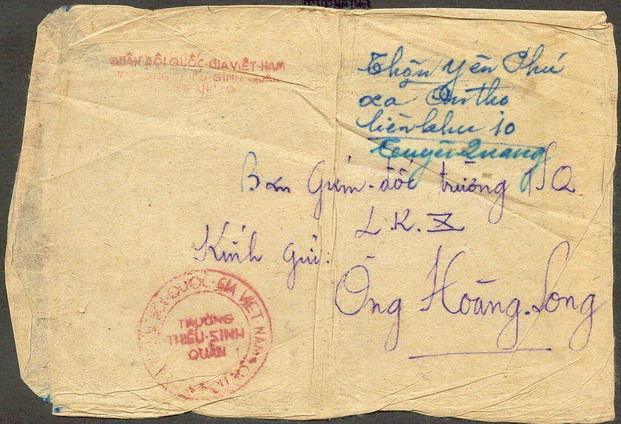 QUÂN ĐỘI QUỐC GIA VIỆT-NAM
Thận Yên Phú
xa
liên khu 10
Tuyên Quang
Ban Giám-đốc trường
L.K. X
Kính gửi:
Ông Hoàng-Long
QUỐC GIA VIỆT NAM
TRƯỜNG
THIẾU-SINH
QUÂN